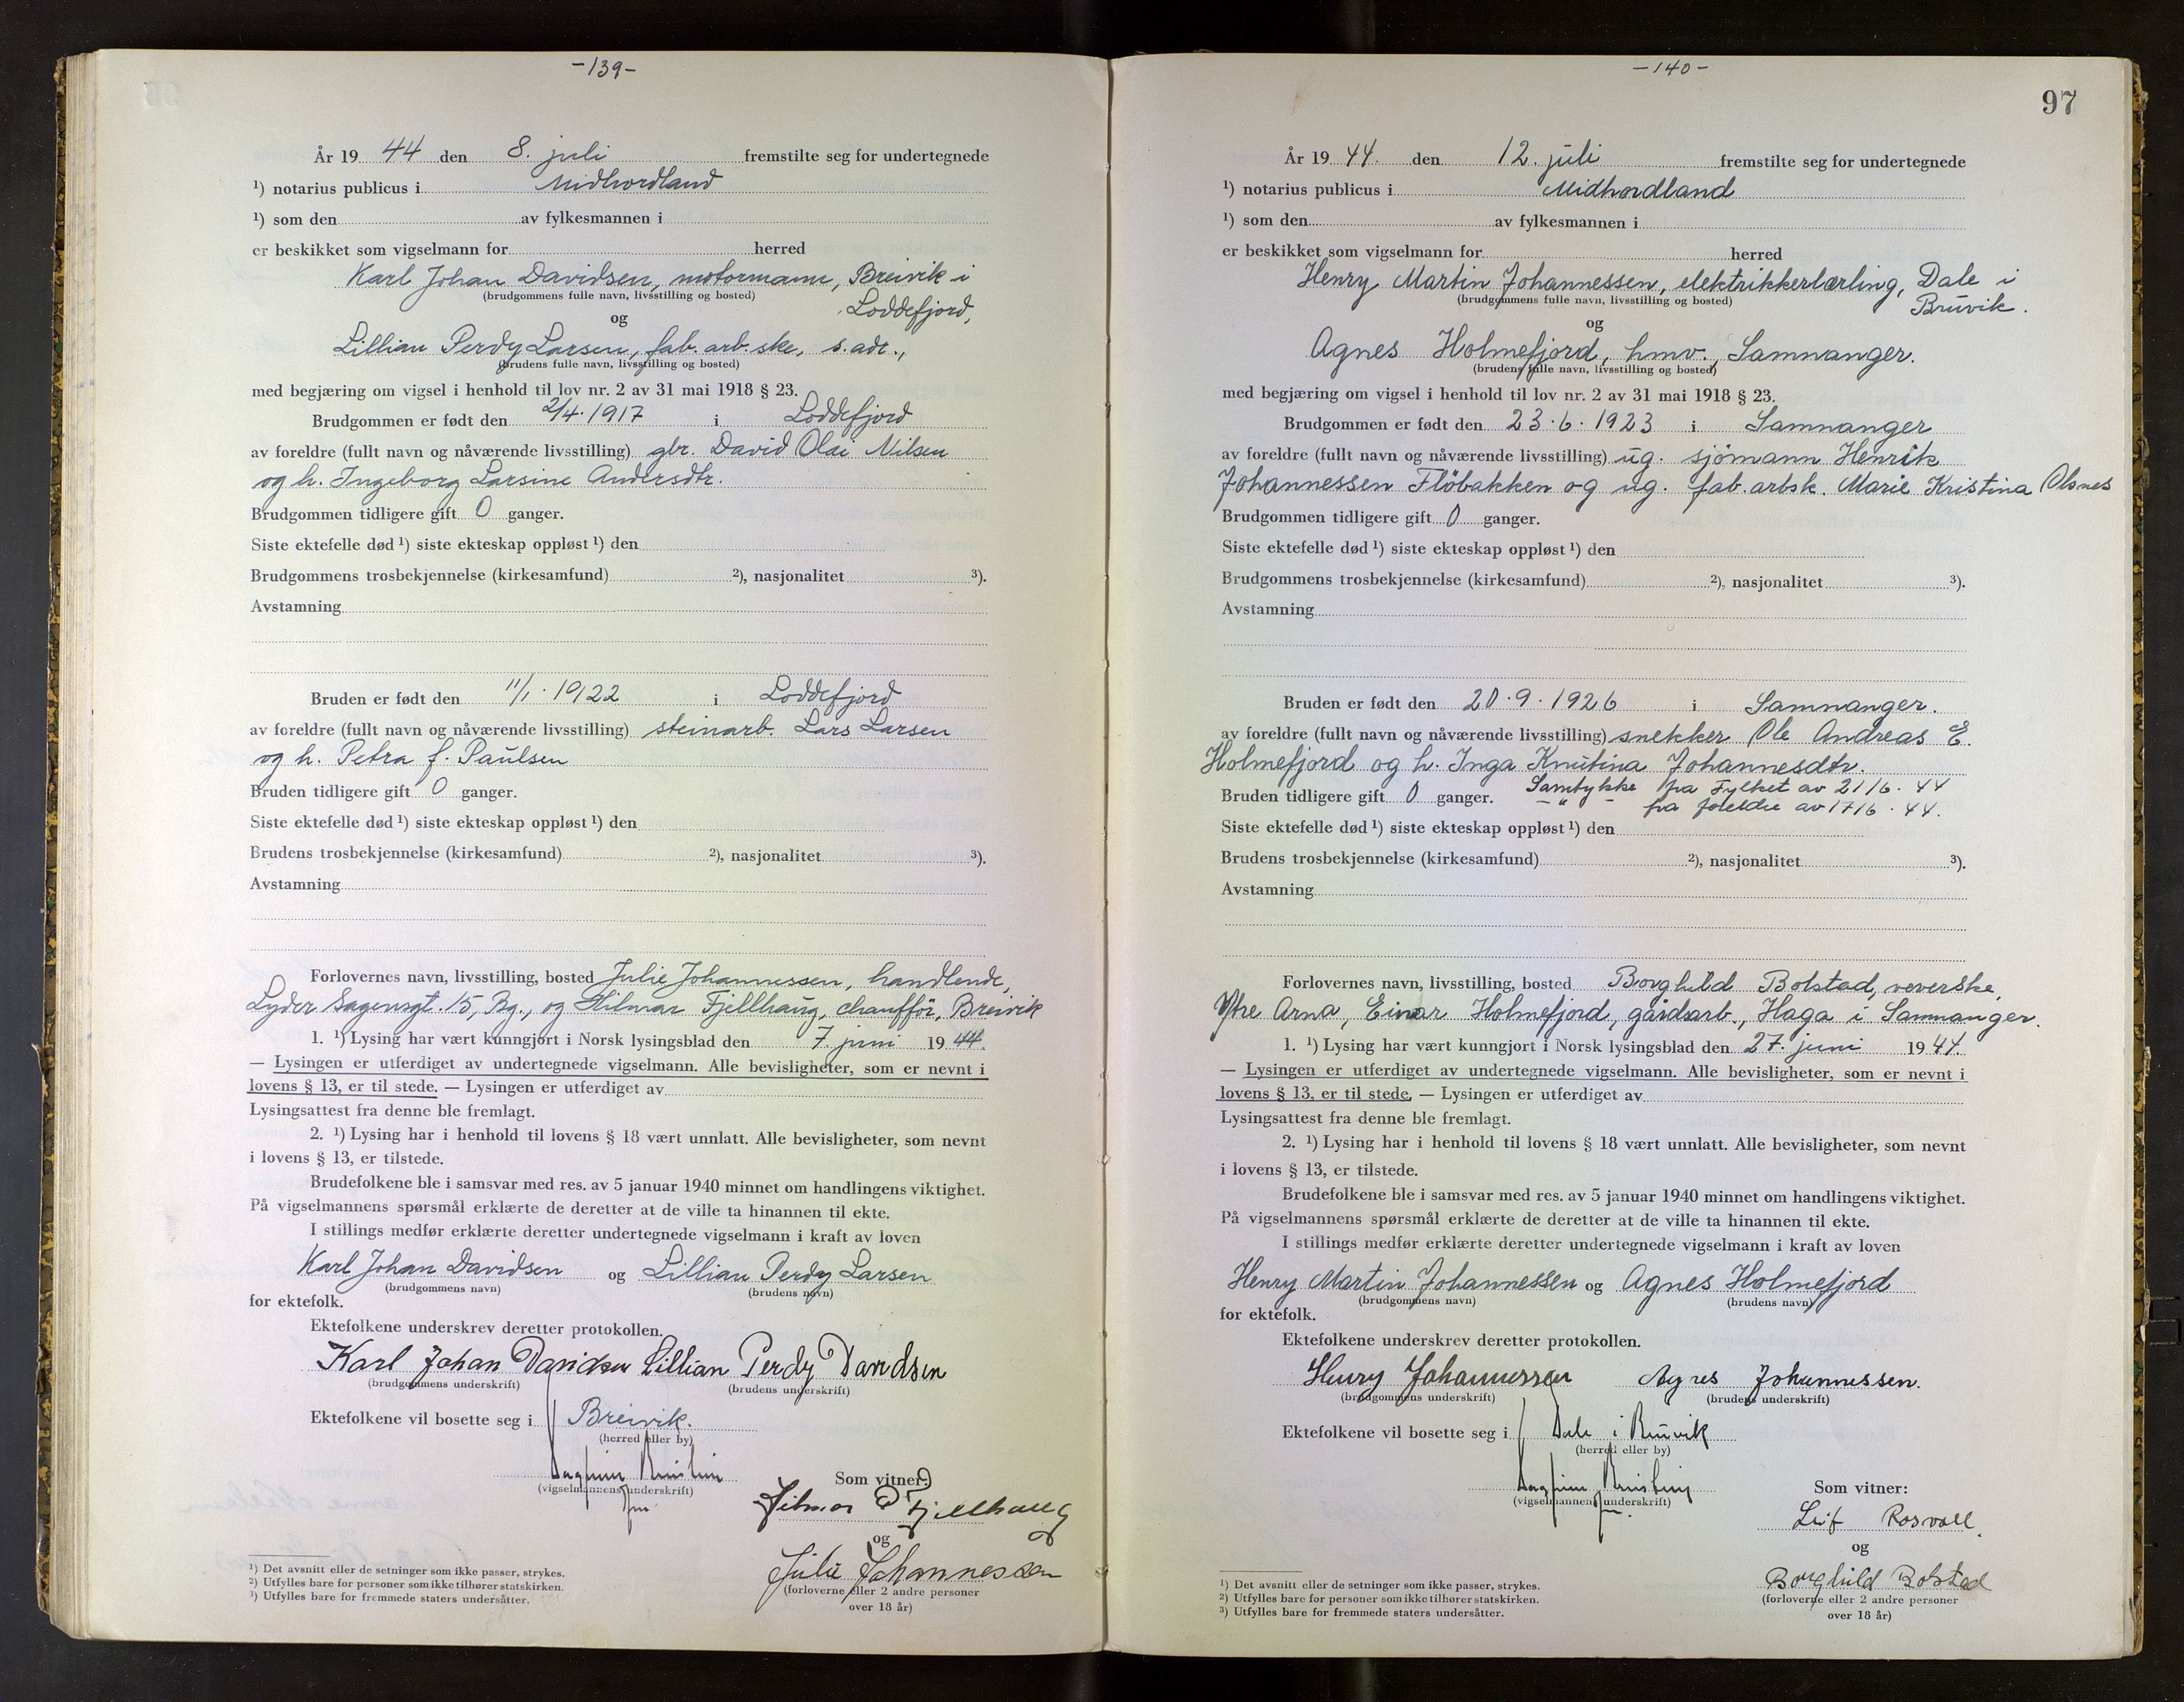 -139-
År 19 44 den 8. juli fremstilte seg for undertegnede
¹) notarius publicus i Midhordland
¹) som den av fylkesmannen i
er beskikket som vigselmann for herred
Karl Johan Davidsen, motormann, Breivik i
(brudgommens fulle navn, livsstilling og bosted)
Loddefjord,
og
Lillian Perdy Larsen, fab.arb.ske, s.adr.,
(brudens fulle navn, livsstilling og bosted)
med begjæring om vigsel i henhold til lov nr. 2 av 31 mai 1918 § 23.
Brudgommen er født den 2/4.1917 i Loddefjord
av foreldre (fullt navn og nåværende livsstilling) gbr. David Olai Nilsen
og h. Ingeborg Larsine Andersdtr.
Brudgommen tidligere gift 0 ganger.
Siste ektefelle død ¹) siste ekteskap oppløst ¹) den
Brudgommens trosbekjennelse (kirkesamfund) ²), nasjonalitet ³).
Avstamning
Bruden er født den 11/1.1922 i Loddefjord
av foreldre (fullt navn og nåværende livsstilling) steinarb. Lars Larsen
og h. Petra f. Paulsen
Bruden tidligere gift 0 ganger.
Siste ektefelle død ¹) siste ekteskap oppløst ¹) den
Brudens trosbekjennelse (kirkesamfund) ²), nasjonalitet ³).
Avstamning
Forlovernes navn, livsstilling, bosted Julie Johannessen, handlende,
Lyder Sagensgt. 15, Bg., og Hilmar Fjellhaug, chaufför, Breivik
1. ¹) Lysing har vært kunngjort i Norsk lysingsblad den 7. juni 19 44.
— Lysingen er utferdiget av undertegnede vigselmann. Alle bevisligheter, som er nevnt i
lovens § 13, er til stede. — Lysingen er utferdiget av
Lysingsattest fra denne ble fremlagt.
2. ¹) Lysing har i henhold til lovens § 18 vært unnlatt. Alle bevisligheter, som nevnt
i lovens § 13, er tilstede.
Brudefolkene ble i samsvar med res. av 5 januar 1940 minnet om handlingens viktighet.
På vigselmannens spørsmål erklærte de deretter at de ville ta hinannen til ekte.
I stillings medfør erklærte deretter undertegnede vigselmann i kraft av loven
Karl Johan Davidsen og Lillian Perdy Larsen
(brudgommens navn) (brudens navn)
for ektefolk.
Ektefolkene underskrev deretter protokollen.
Karl Johan Davidsen Lillian Perdy Davidsen
(brudgommens underskrift) (brudens underskrift)
Ektefolkene vil bosette seg i Breivik.
(herred eller by)
(vigselmannens underskrift)
Som vitner:
Hilmar Fjellhaug
og
Julie Johannessen
(forloverne eller 2 andre personer
over 18 år)
¹) Det avsnitt eller de setninger som ikke passer, strykes.
²) Utfylles bare for personer som ikke tilhører statskirken.
³) Utfylles bare for fremmede staters undersåtter.
-140-
97
År 19 44. den 12. juli fremstilte seg for undertegnede
¹) notarius publicus i Midhordland
¹) som den av fylkesmannen i
er beskikket som vigselmann for herred
Henry Martin Johannessen, elektrikkerlærling, Dale i
(brudgommens fulle navn, livsstilling og bosted)
Bruvik.
og
Agnes Holmefjord, hmv., Samnanger.
(brudens fulle navn, livsstilling og bosted)
med begjæring om vigsel i henhold til lov nr. 2 av 31 mai 1918 § 23.
Brudgommen er født den 23.6.1923 i Samnanger
av foreldre (fullt navn og nåværende livsstilling) ug. sjömann Henrik
Johannessen Flöbakken og ug. fab.arbsk. Marie Kristina Olsnes
Brudgommen tidligere gift 0 ganger.
Siste ektefelle død ¹) siste ekteskap oppløst ¹) den
Brudgommens trosbekjennelse (kirkesamfund) ²), nasjonalitet ³).
Avstamning
Bruden er født den 20.9.1926 i Samnanger.
av foreldre (fullt navn og nåværende livsstilling) snekker Ole Andreas E.
Holmefjord og h. Inga Knutina Johannesdtr.
Bruden tidligere gift 0 ganger. Samtykke fra Fylket av 21/6.44
— " — fra foreldre av 17/6.44.
Siste ektefelle død ¹) siste ekteskap oppløst ¹) den
Brudens trosbekjennelse (kirkesamfund) ²), nasjonalitet ³).
Avstamning
Forlovernes navn, livsstilling, bosted Borghild Bolstad, veverske,
Ytre Arna, Einar Holmefjord, gårdsarb., Haga i Samnanger.
1. ¹) Lysing har vært kunngjort i Norsk lysingsblad den 27. juni 19 44.
— Lysingen er utferdiget av undertegnede vigselmann. Alle bevisligheter, som er nevnt i
lovens § 13, er til stede. — Lysingen er utferdiget av
Lysingsattest fra denne ble fremlagt.
2. ¹) Lysing har i henhold til lovens § 18 vært unnlatt. Alle bevisligheter, som nevnt
i lovens § 13, er tilstede.
Brudefolkene ble i samsvar med res. av 5 januar 1940 minnet om handlingens viktighet.
På vigselmannens spørsmål erklærte de deretter at de ville ta hinannen til ekte.
I stillings medfør erklærte deretter undertegnede vigselmann i kraft av loven
Henry Martin Johannessen og Agnes Holmefjord
(brudgommens navn) (brudens navn)
for ektefolk.
Ektefolkene underskrev deretter protokollen.
Henry Johannessen Agnes Johannessen.
(brudgommens underskrift) (brudens underskrift)
Ektefolkene vil bosette seg i Dale i Bruvik
(herred eller by)
(vigselmannens underskrift)
Som vitner:
Leif Rosvoll
og
Borghild Bolstad
(forloverne eller 2 andre personer
over 18 år)
¹) Det avsnitt eller de setninger som ikke passer, strykes.
²) Utfylles bare for personer som ikke tilhører statskirken.
³) Utfylles bare for fremmede staters undersåtter.